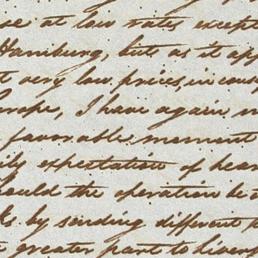 se at low rates except
Hamburg, but, as it app
t very low prices, in cons
urope, I have again, m
favorable moment
ily expectation of hear
ould the operation be o
&c. by sending different p
greater part to